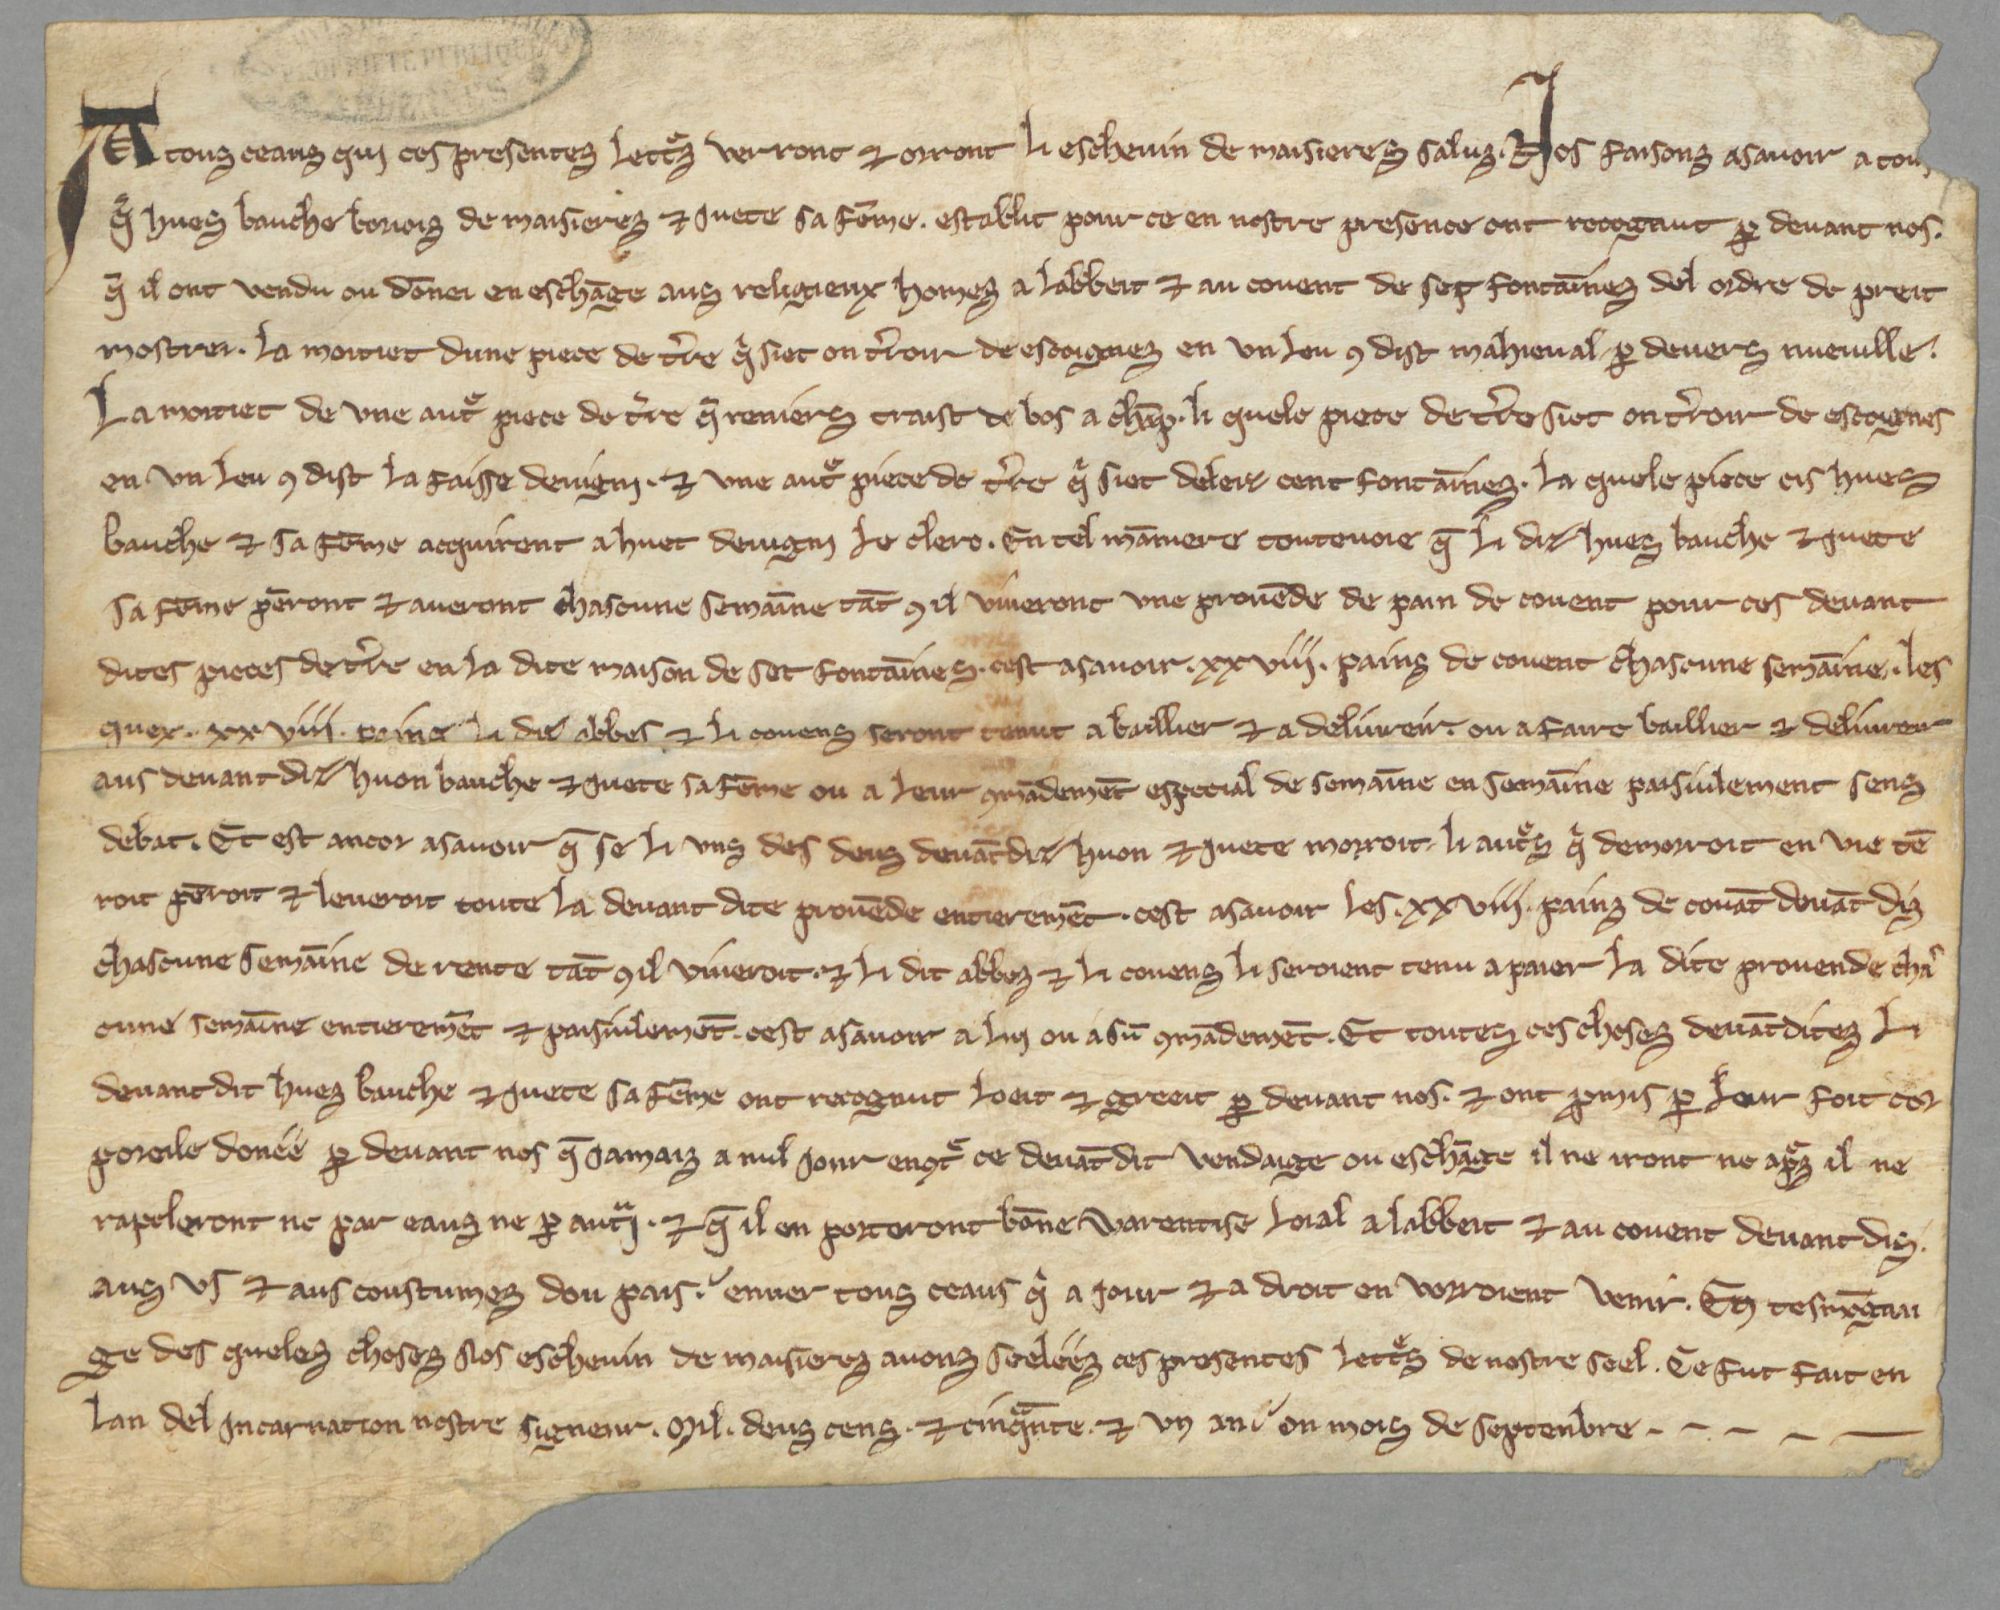 A touz ceauz qui ces presentez lettrez verront ⁊ orront li eschevin de maisierez saluz. Nos faisonz asavoir a touz
q̄ huez bauche borioiz de maisierez ⁊ guete sa fēme. establit pour ce en nostre presence ont recognut ꝑ devant nos.
q̄ il ont vendu ou dōnei en eschāge auz religieux homez a labbeit ⁊ au covent de sept fontāinez del ordre de preit
mostrei. la moitiet dune piece de t̄re qͥ siet on t̄roir de escoignez en un leu ꝯ dist mahieu al ꝑ deverz nueuille.
La moitiet de une autͤ piece de t̄re q̄ renierz traist de bos a chāp. li quele piece de t̄re siet on t̄roir de escoignes
en un leu ꝯ dist la faisse devigni. ⁊ une autͤ piece de t̄re qͥ siet deleiz cent fontāinez. la quele piece cis huez
bauche ⁊ sa fēme acquirent a huet devigni le clerc. En tel māniere toutevoie q̄ li diz huez bauche ⁊ guete
sa fēme pēront ⁊ averont chascune semāine tāt ꝯ il viveront une provēde de pain de covent pour ces devant
dites pieces de t̄re en la dite maison de set fontāinez. cest asavoir. xxviii. painz de covent chascune semāine. les
quex. xxviii. painz li diz abbes ⁊ li covenz seront tenut a baillier ⁊ a delivreir. ou a faire baillier ⁊ delivreir
aus devant diz huon bauche ⁊ guete sa fēme ou a leur ꝯmādemēt especial de semāine en semāine paisiulement senz
debat. Et est ancor asavoir q̄ se li unz des deuz devāt diz huon ⁊ guete morroit. li autͤz qͥ demorroit en vie tē
roit pēroit ⁊ leveroit toute la devant dite provēde entieremēt. cest asavoir les. xxviii. painz de covāt devāt diz
chascune semāine de rente tāt ꝯ il viveroit. ⁊ li dit abbez ⁊ li covenz li seroient tenu a paier la dite provende chas
cune semāine entieremēt ⁊ paisiulemēt. cest asavoir a lui ou a sū ꝯmādemēt. Et toutez ces chosez devāt ditez li
devant dit huez bauche ⁊ guete sa fēme ont recognut loeit ⁊ greeit ꝑ devant nos. ⁊ ont ꝓmis ꝑ leur foit cor
poreile donéé ꝑ devant nos q̄ jamaiz a nul jour enꝯtͤ ce devāt dit vendaige ou eschāge il ne iront ne apͤz il ne
rapeleront ne par eauz ne ꝑ autͥ. ⁊ q̄ il en porteront bōne warentise loial a labbeit ⁊ au covent devant diz.
auz us ⁊ aus coustumez dou pais. enver touz ceaus qͥ a jour ⁊ a droit en vorroient venir. En tesmōgnai
ge des quelez chosez Nos eschevin de maisierez avonz seeléez ces presentes lettͤz de nostre seel. Ce fut fait en
lan del Incarnation nostre signeur. Mil. deuz cenz. ⁊ cinqͣnte. ⁊ un an. on mois de septenbre